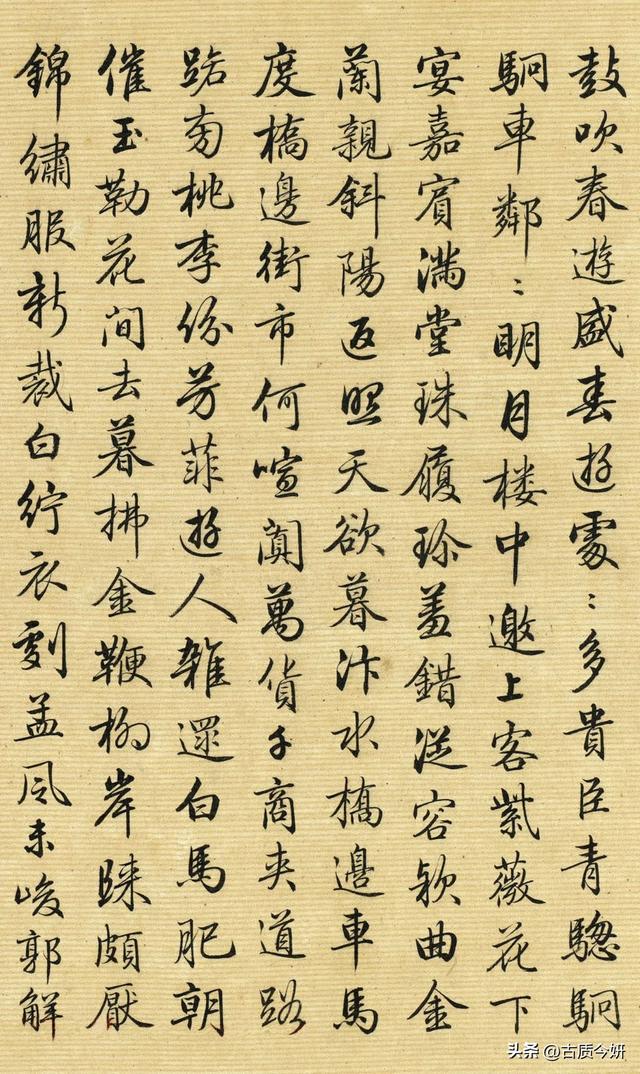 鼓吹春遊盛春遊處〻多貴臣青驄駉
駉車鄰〻明月楼中邀上客紫薇花下
宴嘉賓滿堂珠履珍羞錯從容款曲金
蘭親斜陽返照天欲暮汴水橋邊車馬
度橋邊街市何喧闐萬貨千商夾道路
路旁桃李份芳菲遊人雜遝白馬肥朝
催玉勒花间去暮拂金鞭柳岸歸頗厭
錦繡服新裁白紵衣劇孟風未峻郭解
头条 @古质今妍